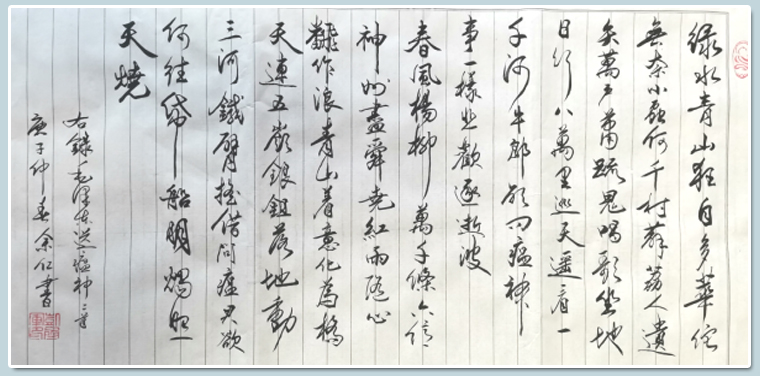 绿水青山枉自多華佗
無奈小蟲何千村薜荔人遺
矢萬户蕭疏鬼唱歌坐地
日行八萬里巡天遥看一
千河牛郎欲问瘟神
事一樣悲歡逐逝波
春風楊柳萬千條六億
神州盡舜堯紅雨隨心
翻作浪青山着意化為橋
天連五嶺銀鋤落地動
三河鐵臂摇借问瘟君欲
何往紙船明燭照
天燒
右錄毛澤東送瘟神二首
庚子仲春余仁書